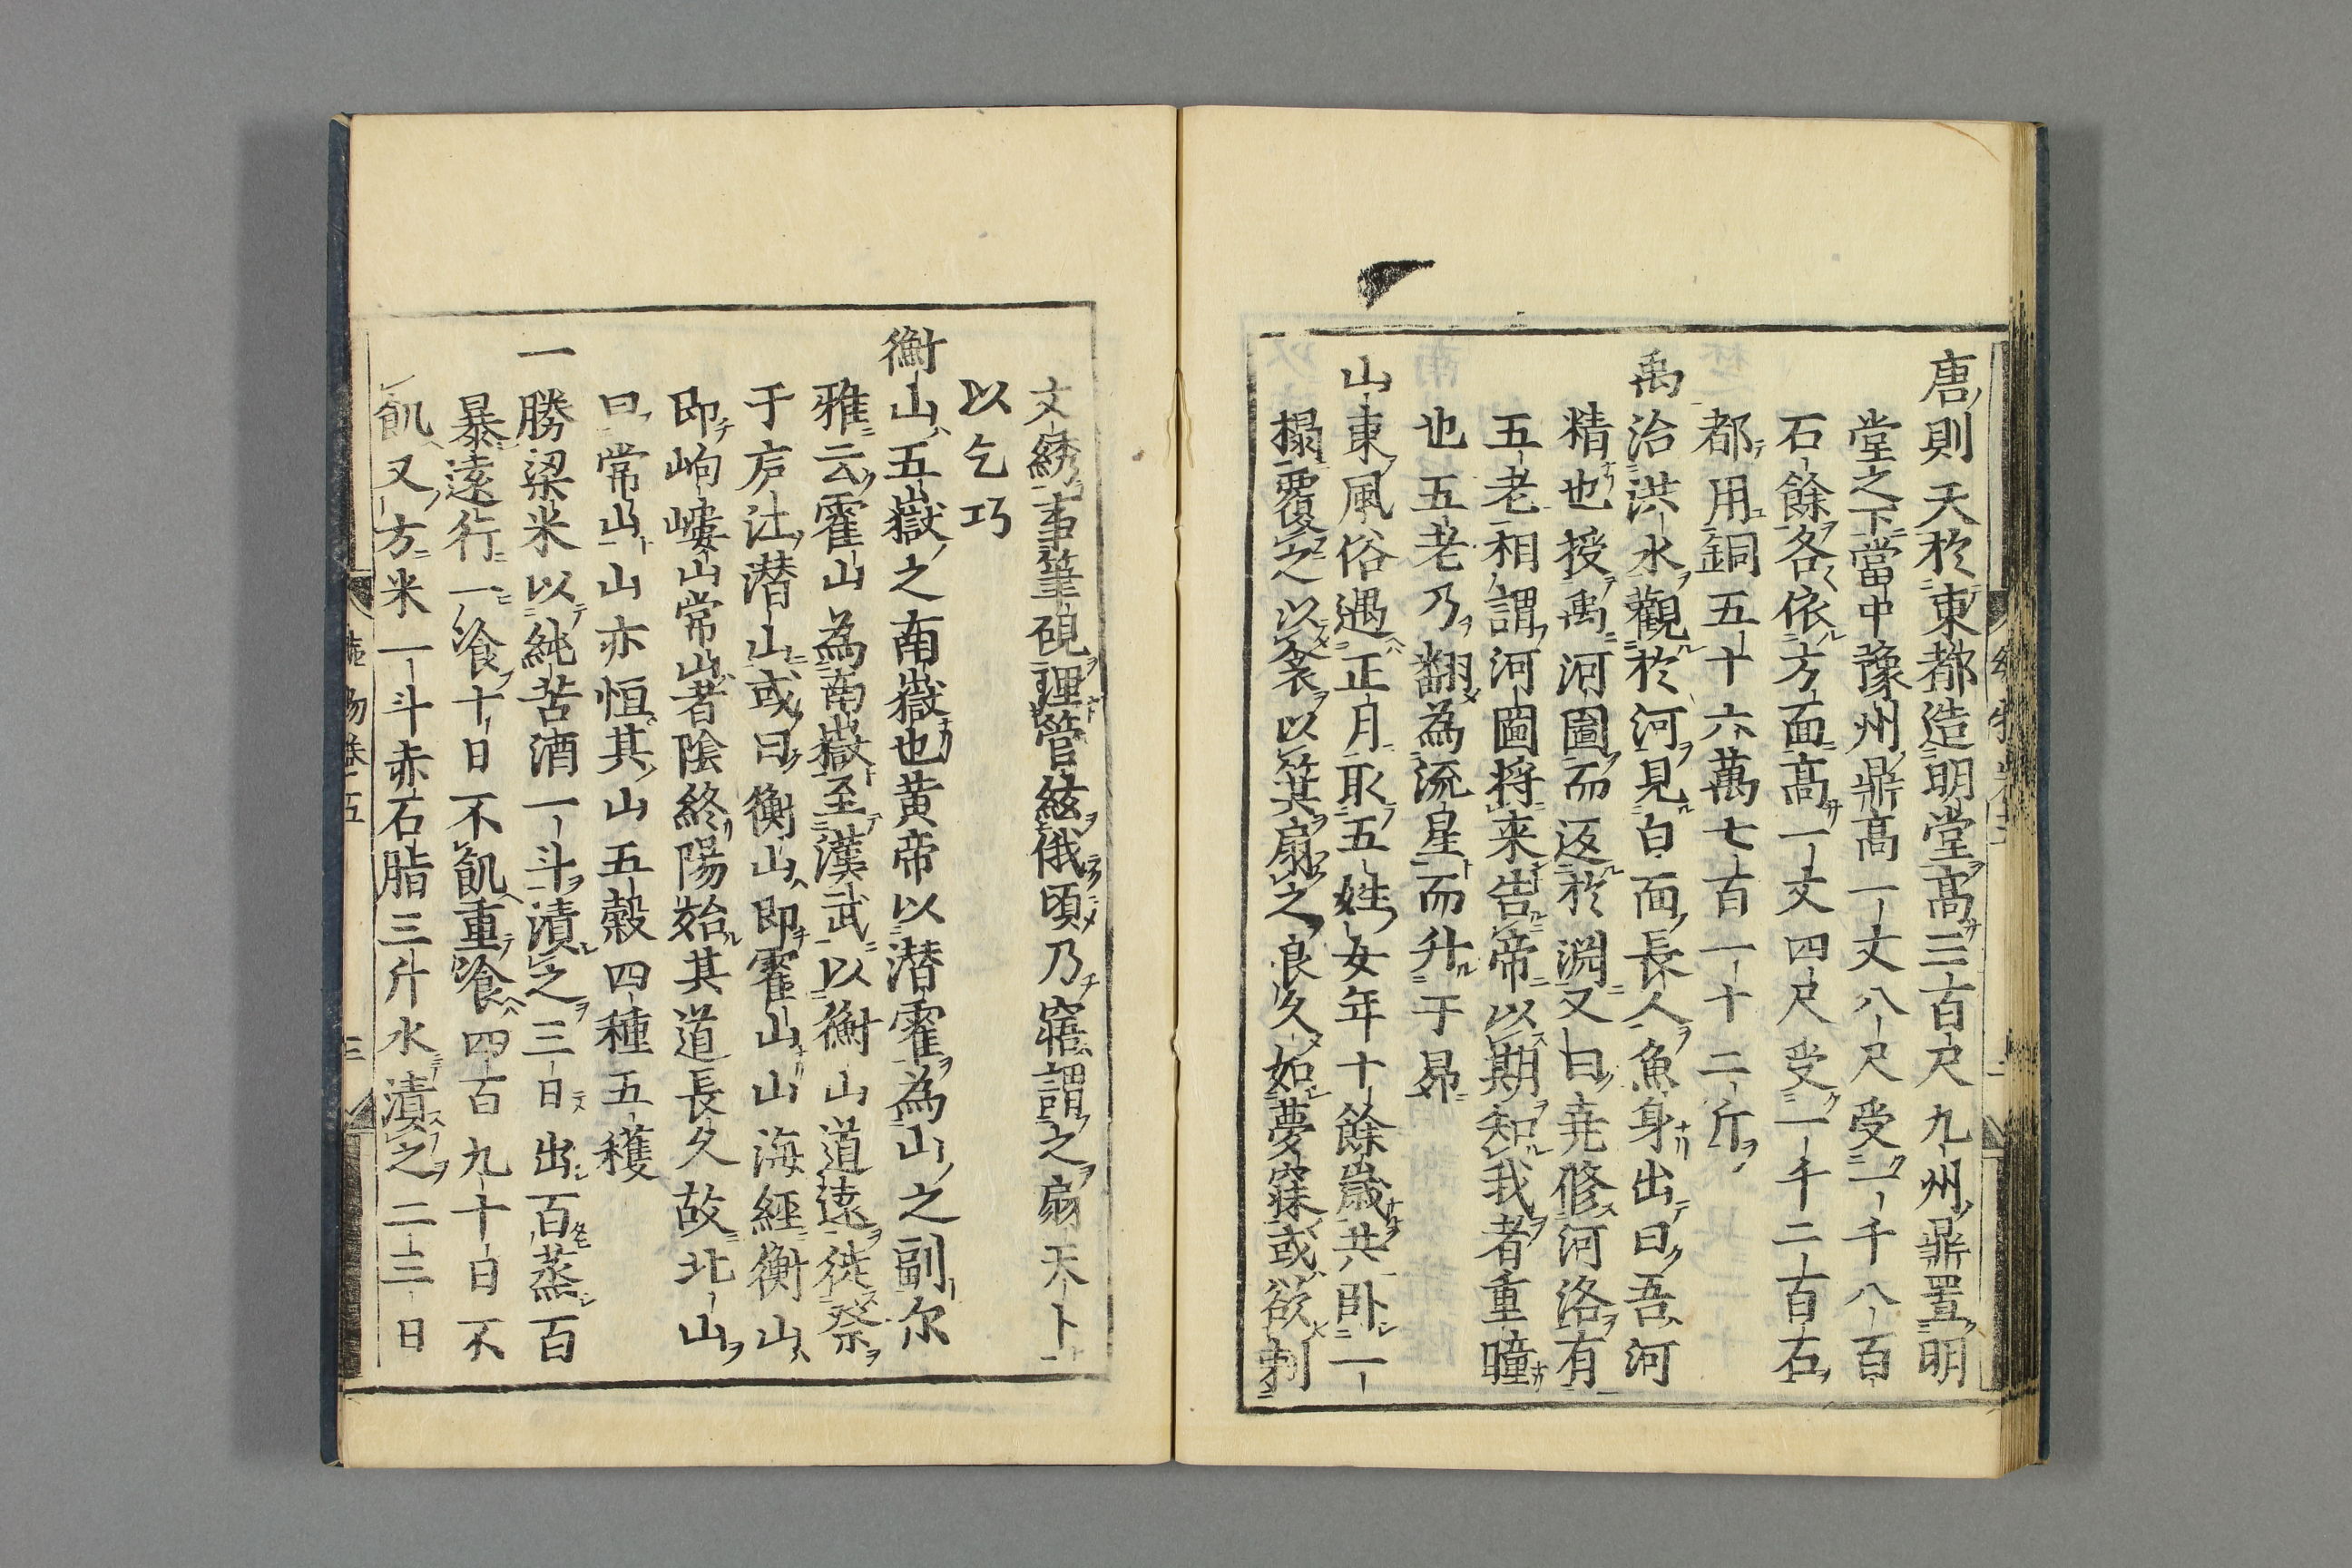 唐則天於東都造明堂高三百尺九州鼎置明
堂之下當中豫州鼎高一丈八尺受一千八百
石餘各依方面高一丈四尺受一千二百石
都用銅五十六萬七百一十二斤
禹治洪水觀於河見白面長人魚身出曰吾河
精也授禹河圖而返於淵又曰尭修河洛有
五老相謂河圖将来告帝以期知我者重瞳
也五老乃翻為流星而升于昴
山東風俗遇正月取五姓女年十餘歳共卧一
榻覆之以衾以箕扇之良久如夢寐或欲刺
文綉事筆硯理管絃俄頃乃寤謂之扇天卜
以乞巧
衡山五嶽之南嶽也黄帝以潜霍為山之副尔
雅云霍山為南嶽至漢武以衡山道遠徙祭
于庐江潜山或曰衡山即霍山山海經衡山
即岣嶁山常山者陰終陽始其道長久故北山
曰常山山亦恒其山五穀四種五穫
一勝梁米以純苦酒一斗漬之三日出百蒸百
暴遠行一飡十日不飢重飡四百九十日不
飢又方米一斗赤石脂三斤水漬之二三日